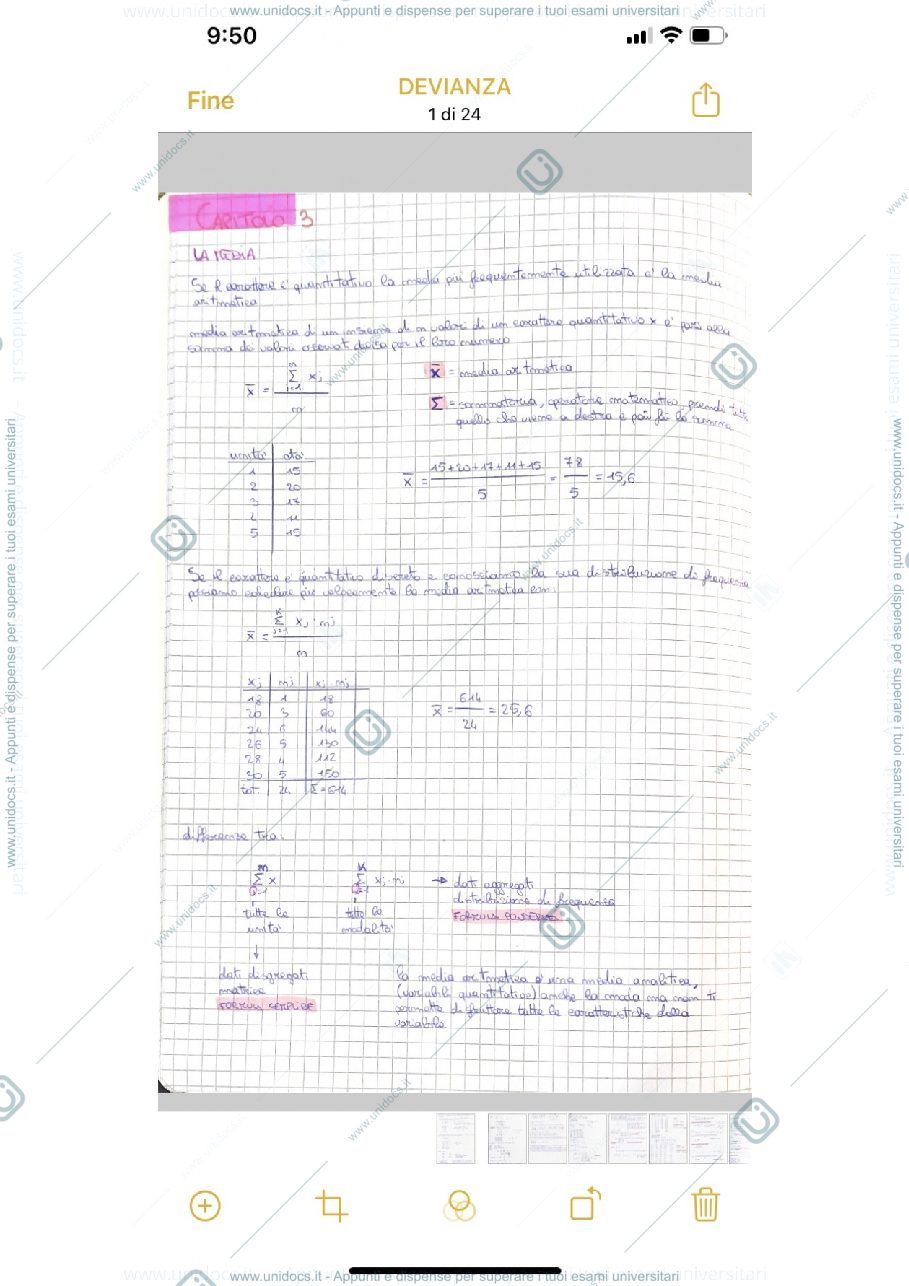 www.unidocs.it - Appunti e dispense per superare i tuoi esami universitari
9:50
Fine
DEVIANZA
1 di 24
CAPITOLO 3
LA MEDIA
Se il carattere è quantitativo la media più frequentemente utilizzata è la media
aritmetica
media aritmetica di un insieme di n valori di un carattere quantitativo x è pari alla
somma dei valori osservati divisa per il loro numero
x̄ = Σ xj / n
n
j=1
x̄ = media aritmetica
Σ = sommatoria, operatore matematico prendi tutto
quello che viene a destra e poi fai la somma
unità | età
1 | 15
2 | 20
3 | 17
4 | 11
5 | 15
x̄ = 15+20+17+11+15 / 5 = 78 / 5 = 15,6
Se il carattere è quantitativo discreto e conosciamo la sua distribuzione di frequenza
possiamo calcolare più velocemente la media aritmetica con:
x̄ = Σ xj · nj / n
K
j=1
xj | nj | xj · nj
18 | 1 | 18
20 | 3 | 60
24 | 6 | 144
26 | 5 | 130
28 | 4 | 112
30 | 5 | 150
tot. | 24 | Σ=614
x̄ = 614 / 24 = 25,6
differenze tra:
n
Σ x
=1
tutte le
unità
↓
dati disgregati
matrice
FORMULA SEMPLICE
K
Σ xj · nj
=1
tutte le
modalità
→ dati aggregati
distribuzione di frequenza
FORMULA PONDERATA
la media aritmetica è una media analitica,
(variabili quantitative) anche la moda ma non ti
permette di sfruttare tutte le caratteristiche della
variabile
www.unidocs.it - Appunti e dispense per superare i tuoi esami universitari